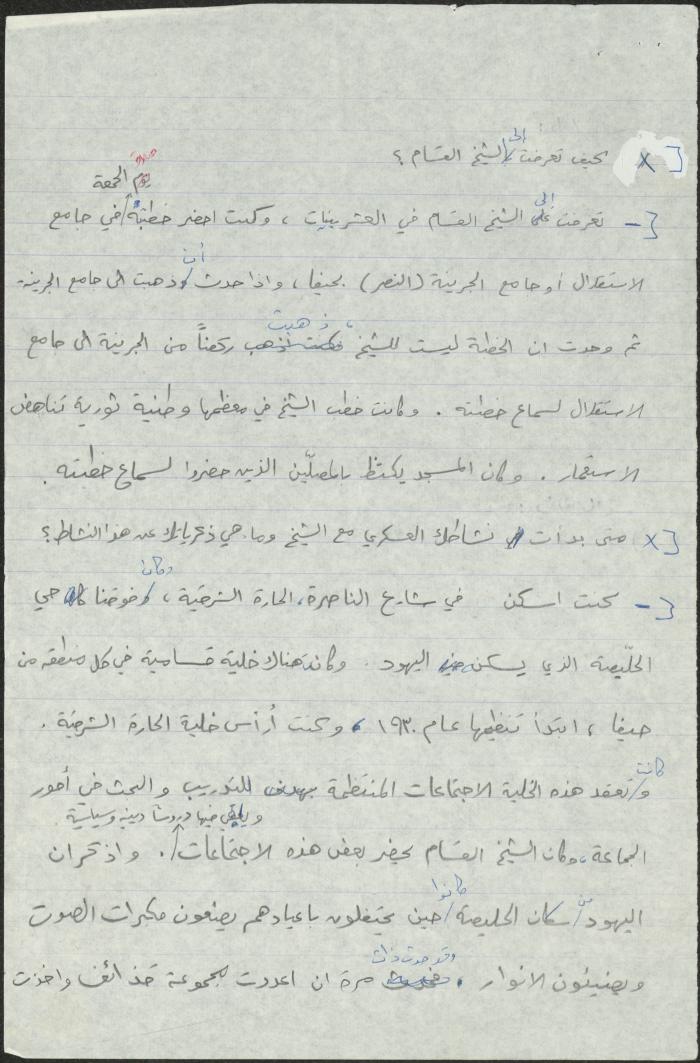 x كيف تعرفت إلى الشيخ القسام ؟
صلاة
يوم الجمعة
- تعرفت إلى الشيخ القسام في العشرينات ، وكنت احضر خطبه في جامع
الاستقلال أو جامع الجرينة (النصر) بحيفا ، واذا حدث أن ذهبت الى جامع الجرينة
ثم وجدت ان الخطبة ليست للشيخ ، ذهبت ركضاً من الجرينة الى جامع
الاستقلال لسماع خطبته . وكانت خطب الشيخ في معظمها وطنية ثورية تناهض
الاستعمار . وكان المسجد يكتظ بالمصلّين الذين حضروا لسماع خطبته .
x متى بدأت نشاطك العسكري مع الشيخ وما هي ذكرياتك عن هذا النشاط ؟
- كنت اسكن في شارع الناصرة ، الحارة الشرقية ، وكان فوقنا حي
الحلّيصة الذي يسكن اليهود . وكانت هناك خلية قسامية في كل منطقة من
حيفا ، ابتدأ تنظيمها عام ١٩٣٠ ، وكنت أرأس خلية الحارة الشرقية .
وكانت تعقد هذه الخلية الاجتماعات المنتظمة بهدف التدريب والبحث في أمور
ويلقي فيها دروسا دينية وسياسية
الجماعة ، وكان الشيخ القسام يحضر بعض هذه الاجتماعات . واذكر ان
اليهود من سكان الحليصة كانوا حين يحتفلون باعيادهم يضعون مكبرات الصوت
ويضيئون الانوار . وقد حدث ذات مرة ان اعددت مجموعة قذائف واخذت